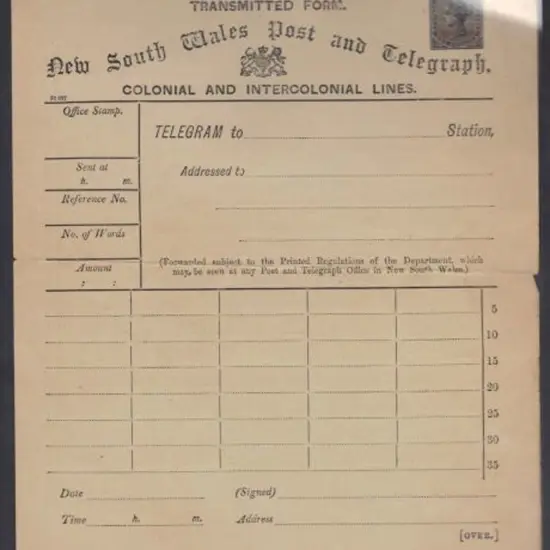 TRANSMITTED FORM.
New South Wales Post and Telegraph.
COLONIAL AND INTERCOLONIAL LINES.
Office Stamp.
TELEGRAM to Station,
Sent at
h. m.
Addressed to
Reference No.
No. of Words
Amount
: :
(Forwarded subject to the Printed Regulations of the Department, which
may be seen at any Post and Telegraph Office in New South Wales.)
5
10
15
20
25
30
35
Date (Signed)
Time h. m. Address
[OVER.]